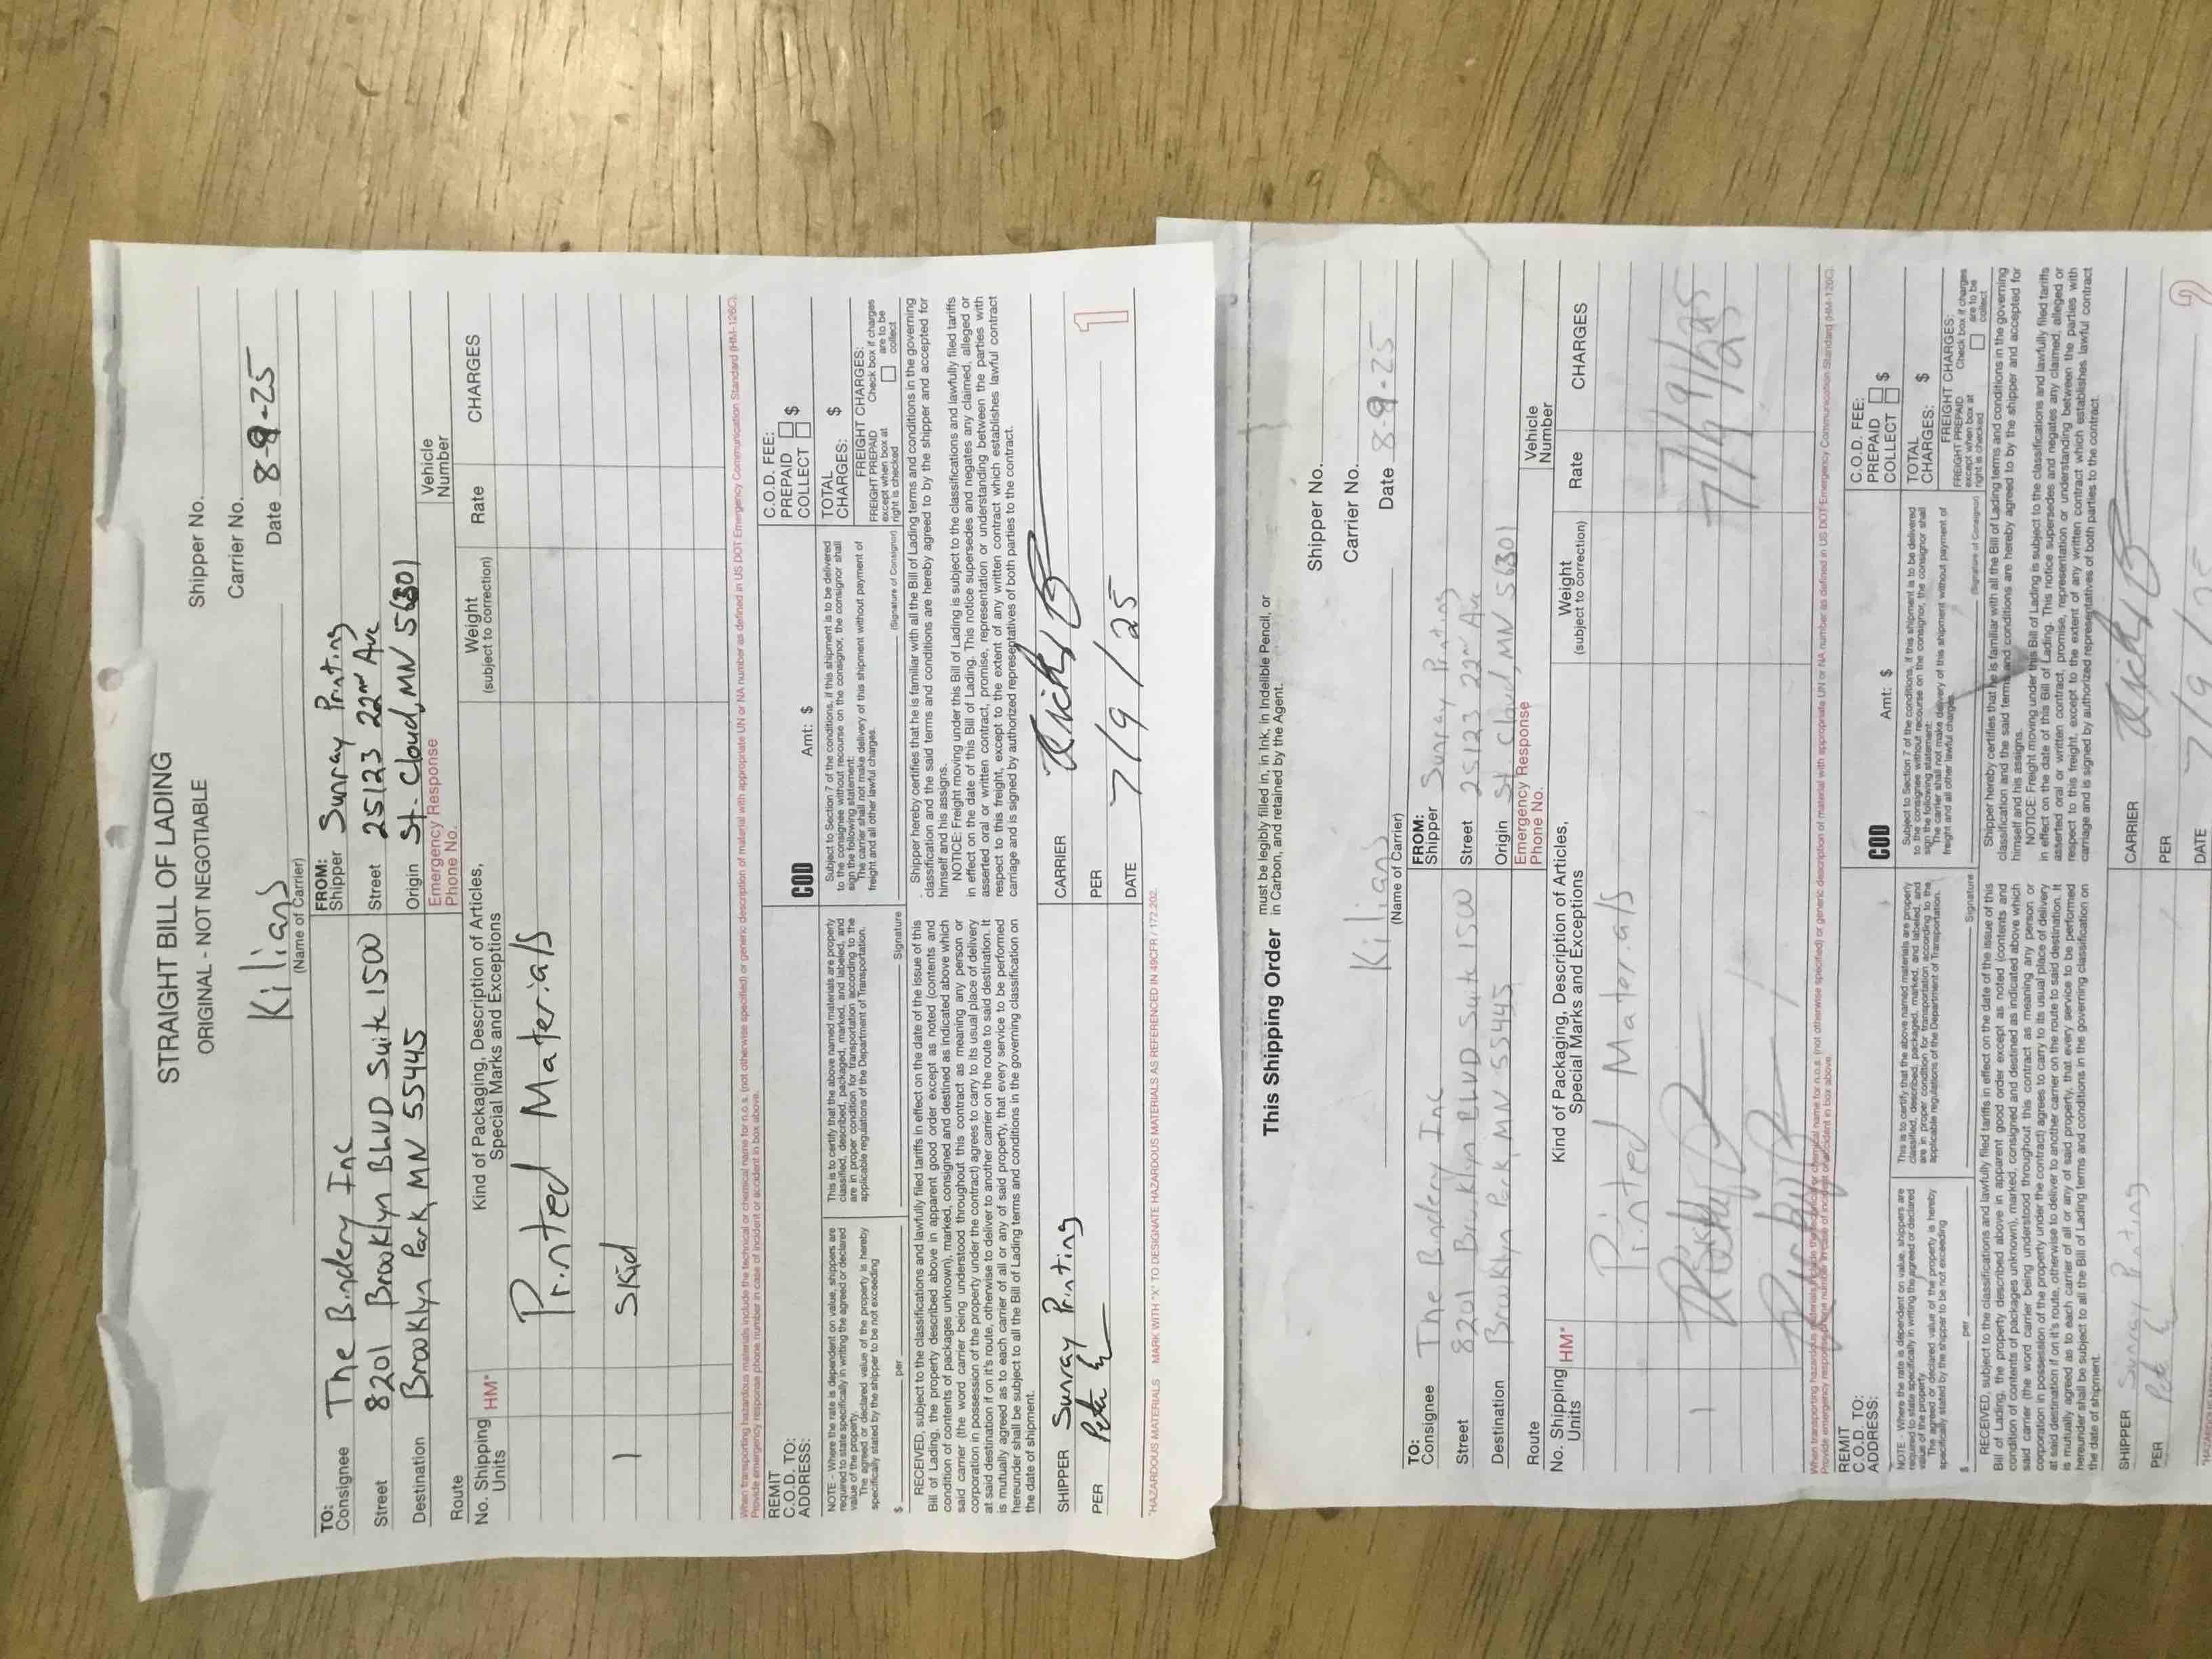 STRAIGHT BILL OF LADING
ORIGINAL - NOT NEGOTIABLE
Shipper No.
Carrier No.
Kilians
(Name of Carrier)
Date 8-9-25
TO:
Consignee The Bindery Inc
FROM:
Shipper Sunray Printing
Street 8201 Brooklyn BLVD Suite 1500
Street 25123 22nd Ave
Destination Brooklyn Park, MN 55445
Origin St. Cloud, MN 56301
Route
Emergency Response
Phone No.
Vehicle
Number
No. Shipping
Units
HM*
Kind of Packaging, Description of Articles,
Special Marks and Exceptions
Weight
(subject to correction)
Rate
CHARGES
Printed Materials
1 Skid
When transporting hazardous materials include the technical or chemical name for n.o.s. (not otherwise specified) or generic description of material with appropriate UN or NA number as defined in US DOT Emergency Communication Standard (HM-126C).
Provide emergency response phone number in case of incident or accident in box above.
REMIT
C.O.D. TO:
ADDRESS:
COD
Amt: $
C.O.D. FEE:
PREPAID
COLLECT $
NOTE - Where the rate is dependent on value, shippers are
required to state specifically in writing the agreed or declared
value of the property.
The agreed or declared value of the property is hereby
specifically stated by the shipper to be not exceeding
$ per
This is to certify that the above named materials are properly
classified, described, packaged, marked, and labeled, and
are in proper condition for transportation according to the
applicable regulations of the Department of Transportation.
Signature
Subject to Section 7 of the conditions, if this shipment is to be delivered
to the consignee without recourse on the consignor, the consignor shall
sign the following statement:
The carrier shall not make delivery of this shipment without payment of
freight and all other lawful charges.
(Signature of Consignor)
TOTAL
CHARGES: $
FREIGHT CHARGES:
FREIGHT PREPAID
except when box at
right is checked
Check box if charges
are to be
collect
RECEIVED, subject to the classifications and lawfully filed tariffs in effect on the date of the issue of this
Bill of Lading, the property described above in apparent good order except as noted (contents and
condition of contents of packages unknown), marked, consigned and destined as indicated above which
said carrier (the word carrier being understood throughout this contract as meaning any person or
corporation in possession of the property under the contract) agrees to carry to its usual place of delivery
at said destination if on it's route, otherwise to deliver to another carrier on the route to said destination. It
is mutually agreed as to each carrier of all or any of said property, that every service to be performed
hereunder shall be subject to all the Bill of Lading terms and conditions in the governing classification on
the date of shipment.
Shipper hereby certifies that he is familiar with all the Bill of Lading terms and conditions in the governing
classification and the said terms and conditions are hereby agreed to by the shipper and accepted for
himself and his assigns.
NOTICE: Freight moving under this Bill of Lading is subject to the classifications and lawfully filed tariffs
in effect on the date of this Bill of Lading. This notice supersedes and negates any claimed, alleged or
asserted oral or written contract, promise, representation or understanding between the parties with
respect to this freight, except to the extent of any written contract which establishes lawful contract
carriage and is signed by authorized representatives of both parties to the contract.
SHIPPER Sunray Printing
CARRIER
PER Pete
PER
DATE 7/9/25
1
*HAZARDOUS MATERIALS MARK WITH "X" TO DESIGNATE HAZARDOUS MATERIALS AS REFERENCED IN 49CFR / 172.202.
This Shipping Order must be legibly filled in, in Ink, in Indelible Pencil, or
in Carbon, and retained by the Agent.
Shipper No.
Carrier No.
Kilians
(Name of Carrier)
Date 8-9-25
TO:
Consignee The Bindery Inc
FROM:
Shipper Sunray Printing
Street 8201 Brooklyn BLVD Suite 1500
Street 25123 22nd Ave
Destination Brooklyn Park, MN 55445
Origin St. Cloud, MN 56301
Route
Emergency Response
Phone No.
Vehicle
Number
No. Shipping
Units
HM*
Kind of Packaging, Description of Articles,
Special Marks and Exceptions
Weight
(subject to correction)
Rate
CHARGES
Printed Materials
1
7/9/25
When transporting hazardous materials include the technical or chemical name for n.o.s. (not otherwise specified) or generic description of material with appropriate UN or NA number as defined in US DOT Emergency Communication Standard (HM-126C).
Provide emergency response phone number in case of incident or accident in box above.
REMIT
C.O.D. TO:
ADDRESS:
COD
Amt: $
C.O.D. FEE:
PREPAID
COLLECT $
NOTE - Where the rate is dependent on value, shippers are
required to state specifically in writing the agreed or declared
value of the property.
The agreed or declared value of the property is hereby
specifically stated by the shipper to be not exceeding
$ per
This is to certify that the above named materials are properly
classified, described, packaged, marked, and labeled, and
are in proper condition for transportation according to the
applicable regulations of the Department of Transportation.
Signature
Subject to Section 7 of the conditions, if this shipment is to be delivered
to the consignee without recourse on the consignor, the consignor shall
sign the following statement:
The carrier shall not make delivery of this shipment without payment of
freight and all other lawful charges.
(Signature of Consignor)
TOTAL
CHARGES: $
FREIGHT CHARGES:
FREIGHT PREPAID
except when box at
right is checked
Check box if charges
are to be
collect
RECEIVED, subject to the classifications and lawfully filed tariffs in effect on the date of the issue of this
Bill of Lading, the property described above in apparent good order except as noted (contents and
condition of contents of packages unknown), marked, consigned and destined as indicated above which
said carrier (the word carrier being understood throughout this contract as meaning any person or
corporation in possession of the property under the contract) agrees to carry to its usual place of delivery
at said destination if on it's route, otherwise to deliver to another carrier on the route to said destination. It
is mutually agreed as to each carrier of all or any of said property, that every service to be performed
hereunder shall be subject to all the Bill of Lading terms and conditions in the governing classification on
the date of shipment.
Shipper hereby certifies that he is familiar with all the Bill of Lading terms and conditions in the governing
classification and the said terms and conditions are hereby agreed to by the shipper and accepted for
himself and his assigns.
NOTICE: Freight moving under this Bill of Lading is subject to the classifications and lawfully filed tariffs
in effect on the date of this Bill of Lading. This notice supersedes and negates any claimed, alleged or
asserted oral or written contract, promise, representation or understanding between the parties with
respect to this freight, except to the extent of any written contract which establishes lawful contract
carriage and is signed by authorized representatives of both parties to the contract.
SHIPPER Sunray Printing
CARRIER
PER Pete
PER
DATE 7/9/25